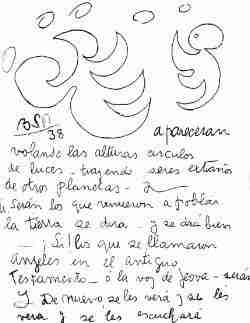 BSP
38
apareceran
volando las alturas circulos
de luces - trayendo seres extraños
de otros planetas -
Serán los que vinieron a poblar
la tierra se dira - y se dirá bien
- ¡Si! los que se llamaron
ángeles en el antiguo
Testamento - o la voz de Jeova - serán
y De nuevo se les verá y se les
vera y se les escuchará